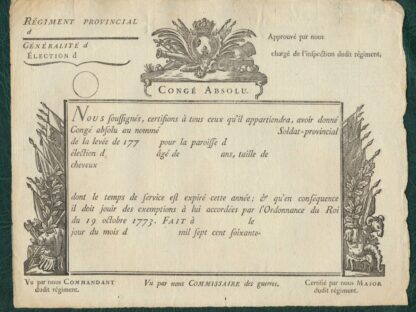 RÉGIMENT PROVINCIAL
d
GÉNÉRALITÉ d
ÉLECTION d
Approuvé par nous
chargé de l'inspection dudit régiment,
CONGÉ ABSOLU.
Nous soussignés, certifions à tous ceux qu'il appartiendra, avoir donné
Congé absolu au nommé Soldat-provincial
de la levée de 177 pour la paroisse d
élection d âgé de ans, taille de
cheveux
dont le temps de service est expiré cette année; & qu'en conséquence
il doit jouir des exemptions à lui accordées par l'Ordonnance du Roi
du 19 octobre 1773. FAIT à le
jour du mois d mil sept cent soixante-
Vu par nous COMMANDANT
dudit régiment.
Vu par nous COMMISSAIRE des guerres.
Certifié par nous MAJOR
dudit régiment.